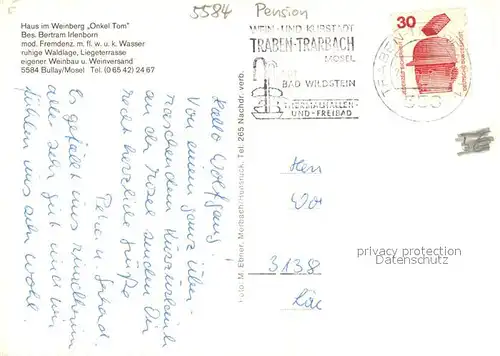 5584 Pension
Haus im Weinberg „Onkel Tom"
Bes. Bertram Irlenborn
mod. Fremdenz. m. fl. w. u. k. Wasser
ruhige Waldlage, Liegeterrasse
eigener Weinbau u. Weinversand
5584 Bullay/Mosel Tel. (0 65 42) 24 67
WEIN- UND KURSTADT
TRABEN-TRARBACH
MOSEL
BAD WILDSTEIN
THERMALHALLEN-
UND -FREIBAD
TRABEN
30
Hallo Wolfgang!
Von einem ganz über-
raschenden Kurzurlaub
an der Mosel senden Dir
recht herzliche Grüße
Petra u. Gerhard.
Es gefällt uns
alle sehr gut und wir
fühlen uns sehr wohl.
Foto: M. Ebner, Morbach/Hunsrück, Tel. 265 Nachdr. verb.
Herr
3138
privacy protection
Datenschutz